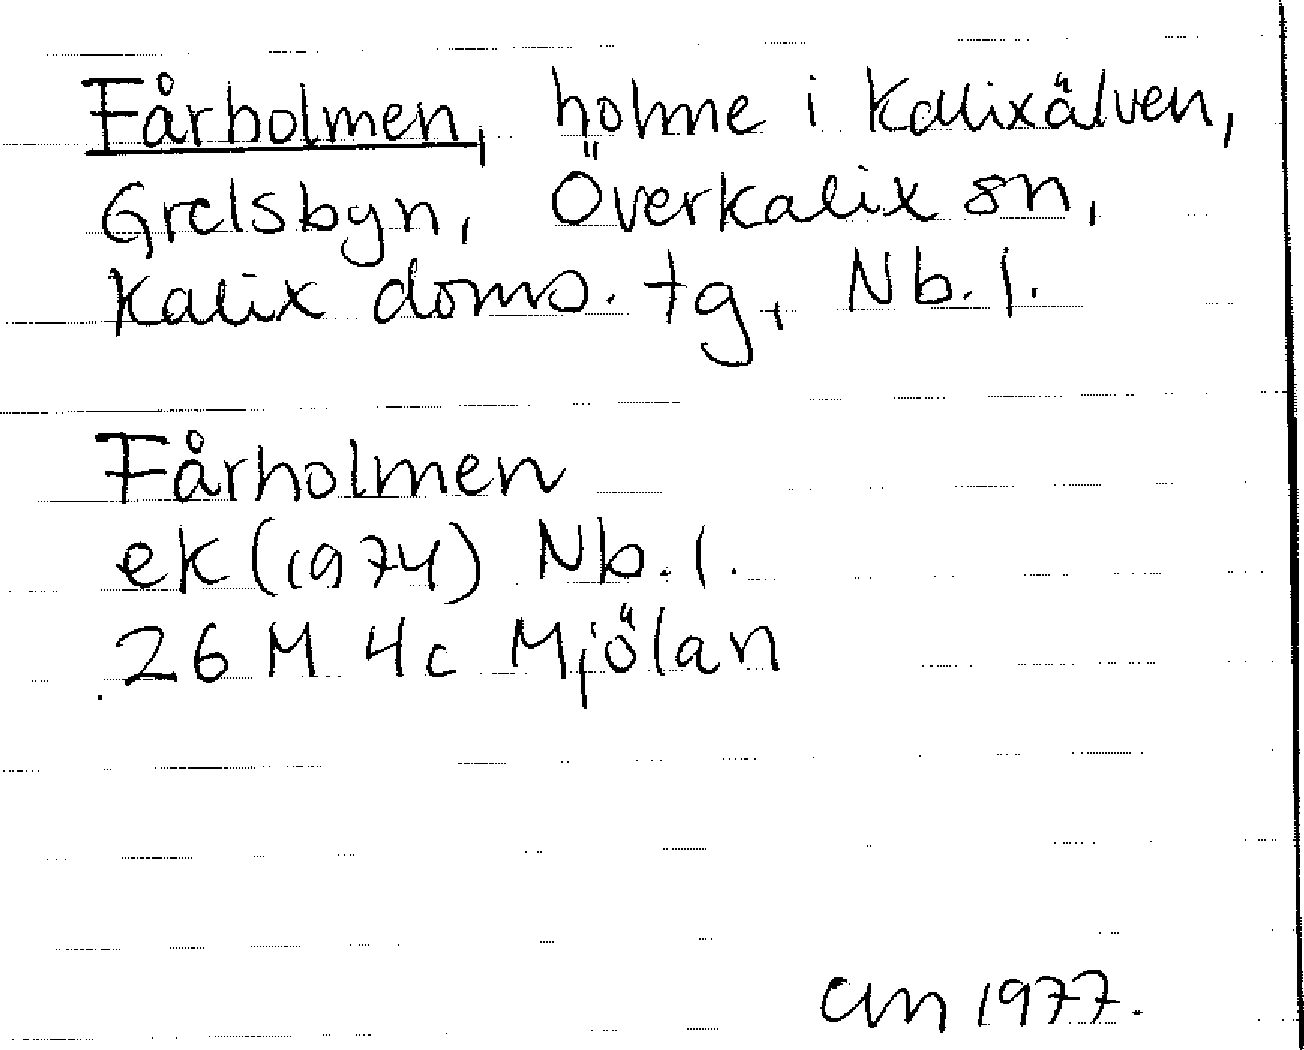 Fårholmen, holme i Kalixälven,
Grelsbyn, Överkalix sn,
Kalix doms. tg, Nb. l.
Fårholmen
ek (1974) Nb. l.
26 M 4c Mjölan
CM 1977.